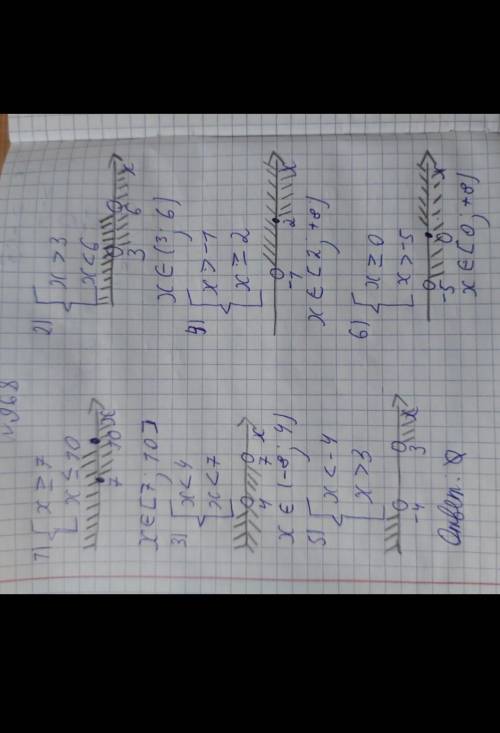 №968
1) { x ≥ 7
x ≤ 10
7 10 x
x ∈ [7; 10]
2) { x > 3
x < 6
3 6 x
x ∈ (3; 6)
3) { x < 4
x < 7
4 7 x
x ∈ (-∞; 4)
4) { x > -1
x ≥ 2
-1 2 x
x ∈ [2; +∞)
5) { x < -4
x > 3
-4 3 x
Ответ: Ø
6) { x ≥ 0
x > -5
-5 0 x
x ∈ [0; +∞)